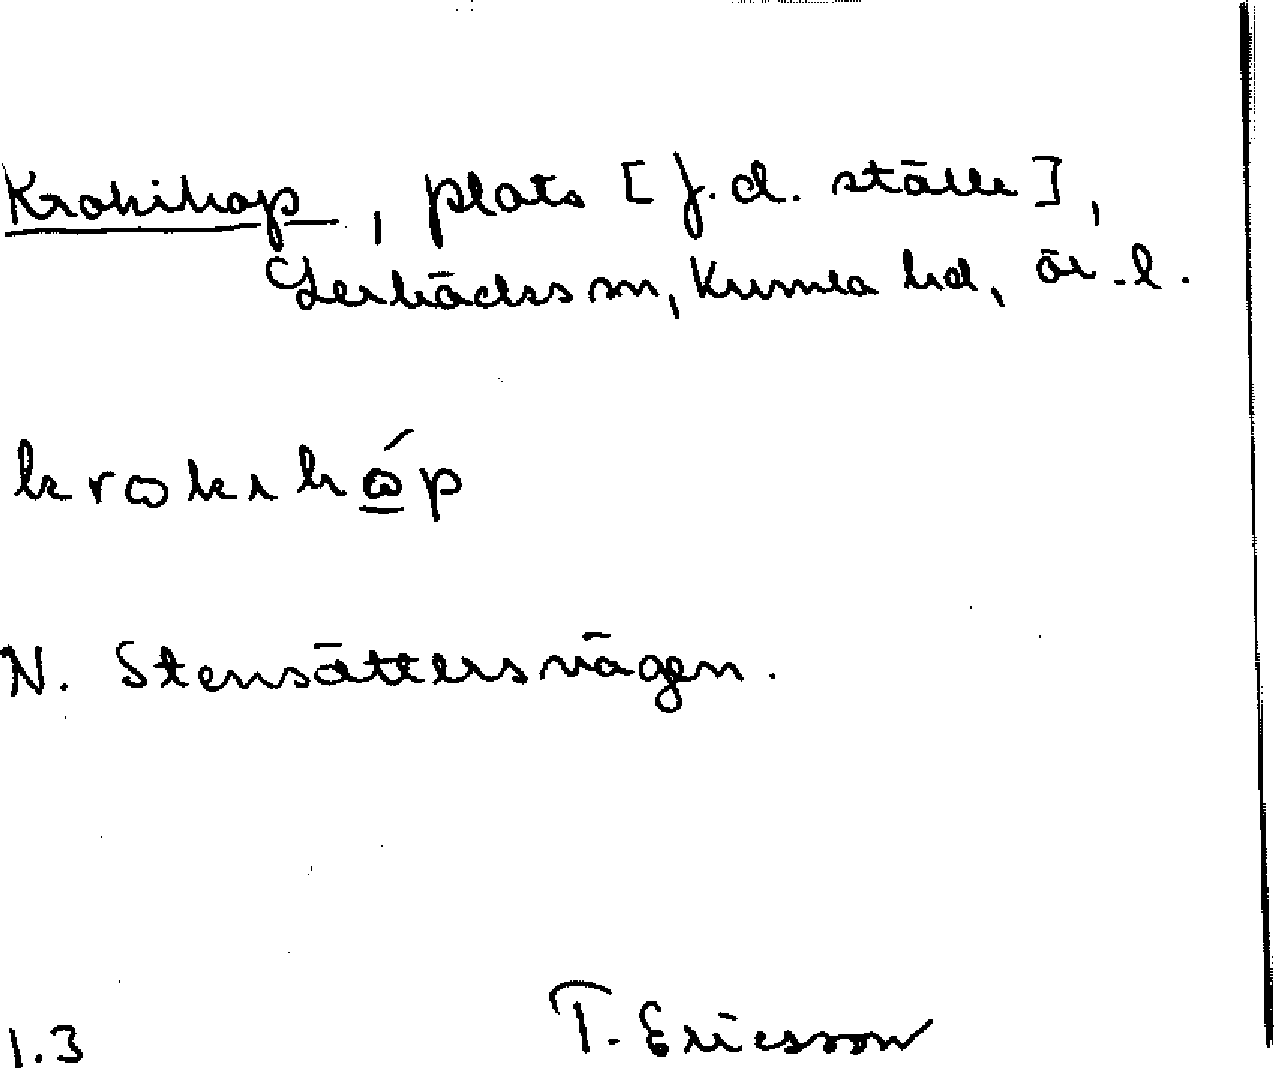 Krokikop, plats [f.d. ställe],
Lerbäcks sn, Kumla hd, ör. l.
krokikóp
N. Stensättersvägen.
1.3 T. Ericsson